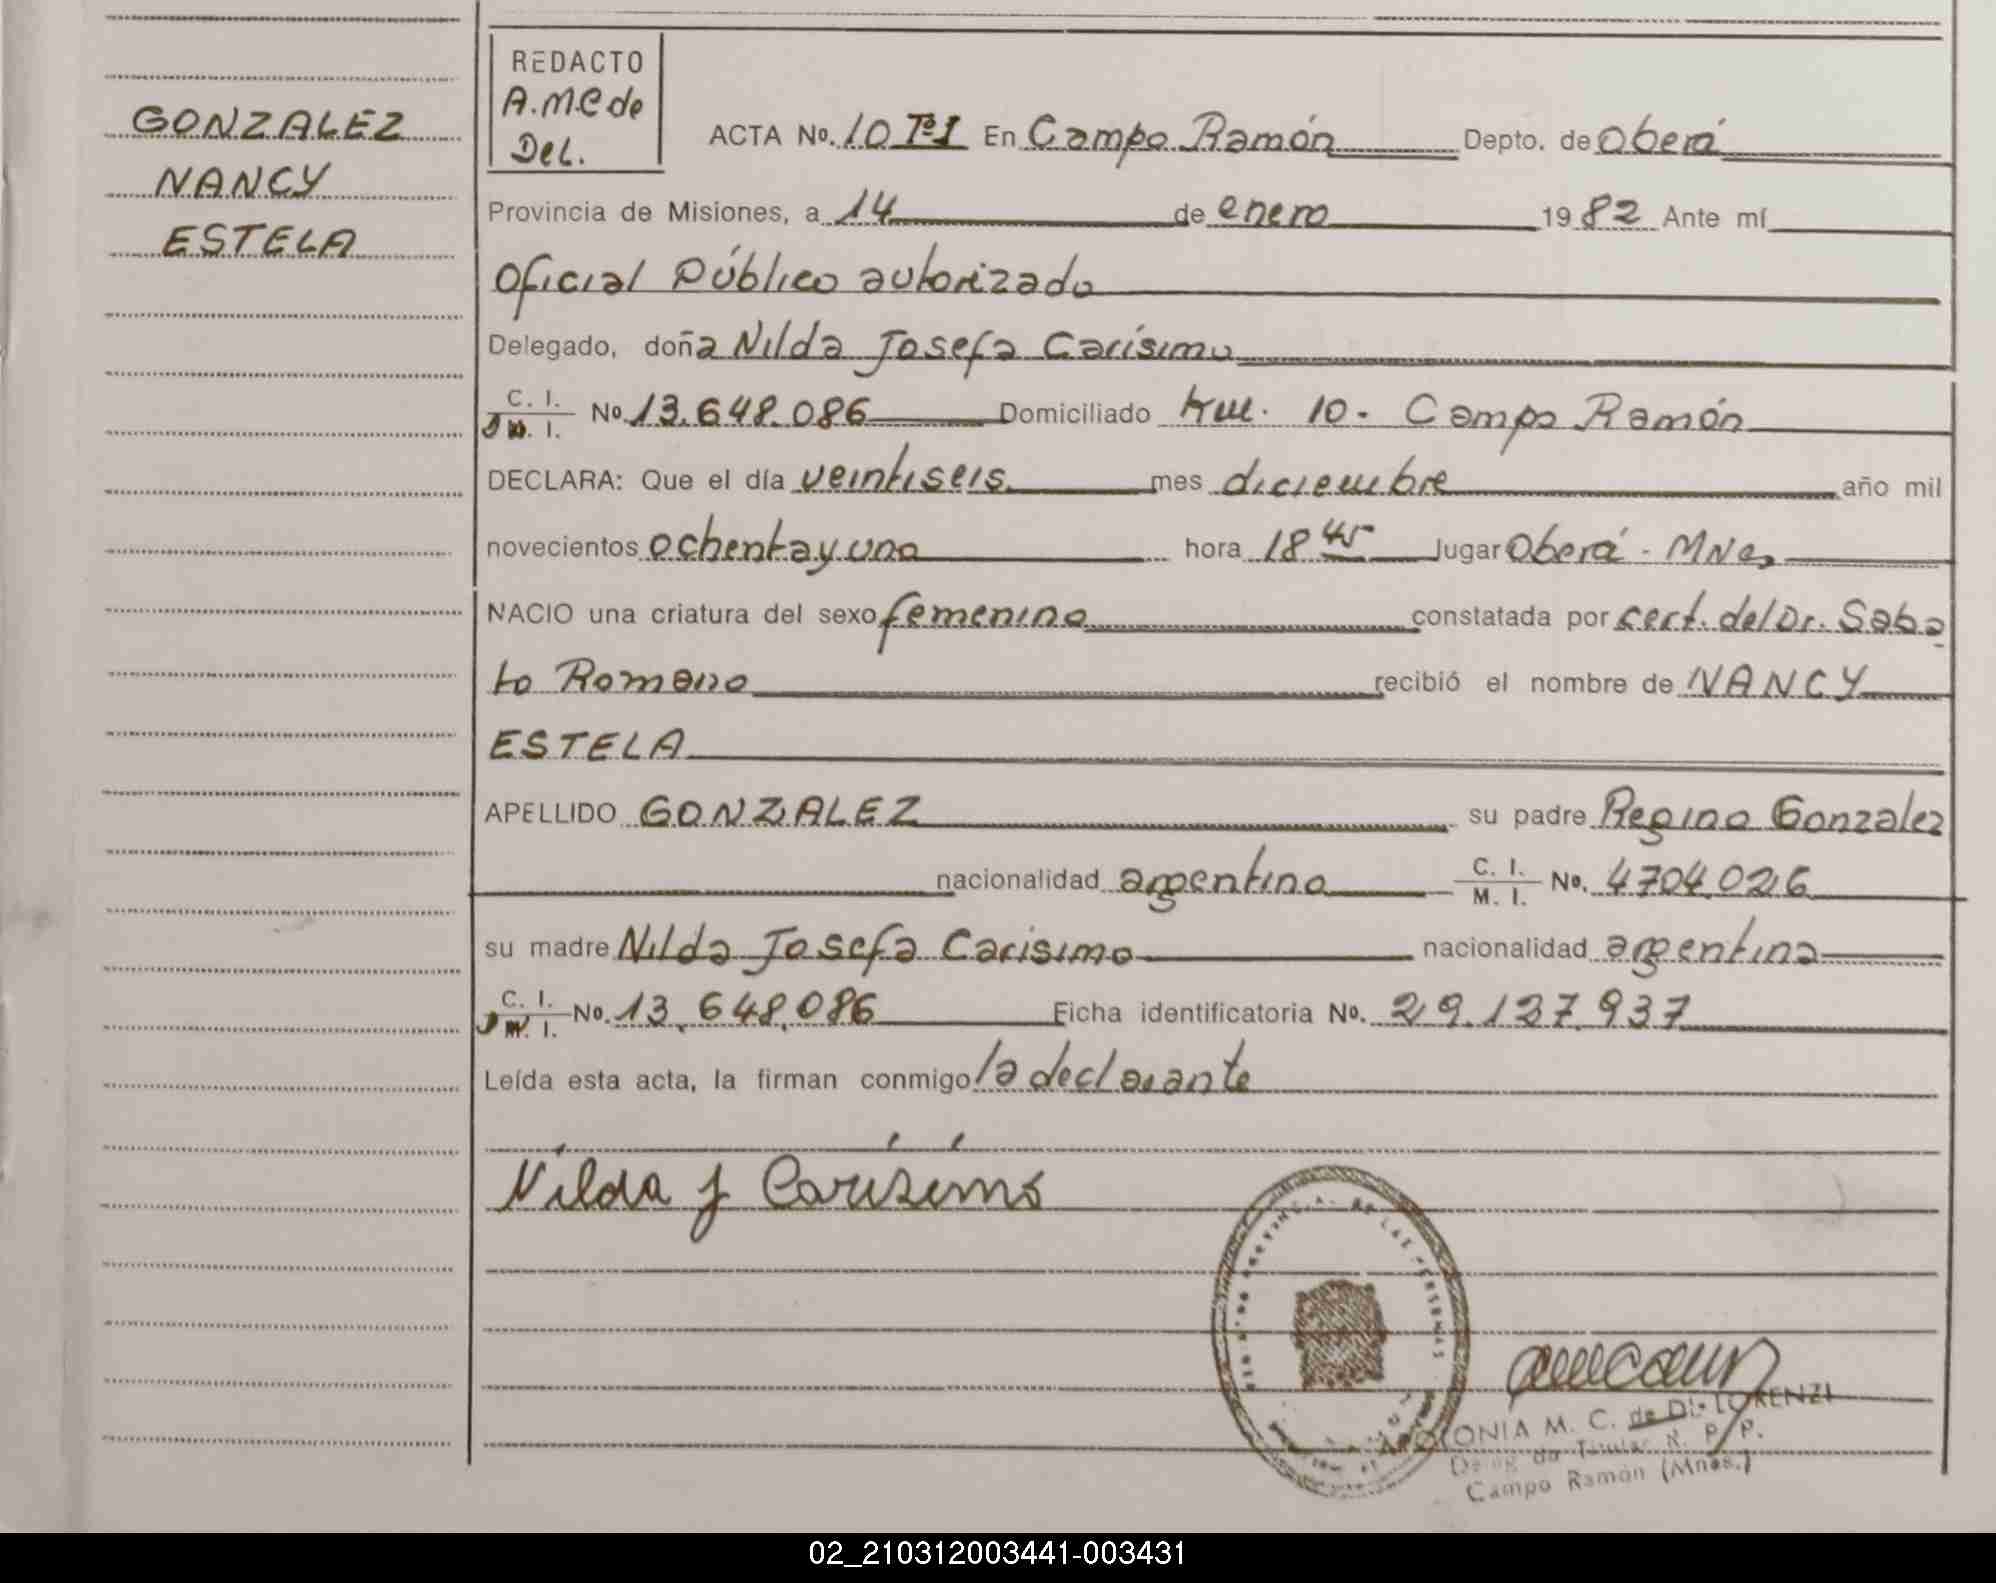 GONZALEZ
NANCY
ESTELA
REDACTO
A.M.C de
DeL.
ACTA No. 10 Tº1 En Campo Ramón Depto. de Oberá
Provincia de Misiones, a 14 de enero 1982 Ante mí
Oficial Público autorizado
Delegado, doña Nilda Josefa Carísimo
C. I.
M. I. No. 13.648.086 Domiciliado Km. 10 - Campo Ramón
DECLARA: Que el día veintiseis mes diciembre año mil
novecientos ochenta y uno hora 18 45 lugar Oberá - Mnes
NACIO una criatura del sexo femenino constatada por cert. del Dr. Saba
to Romano recibió el nombre de NANCY
ESTELA
APELLIDO GONZALEZ su padre Regino Gonzalez
nacionalidad argentino C. I.
M. I. No. 4704.026
su madre Nilda Josefa Carisimo nacionalidad argentina
C. I.
M. I. No. 13.648.086 Ficha identificatoria No. 29.137.937
Leída esta acta, la firman conmigo la declarante
Nilda J Carísimo
PROVINCIAL DE LAS PERSONAS
APOLONIA M. C. de DI LORENZI
Delegada Titular R. P. P.
Campo Ramón (Mnes.)
02_210312003441-003431